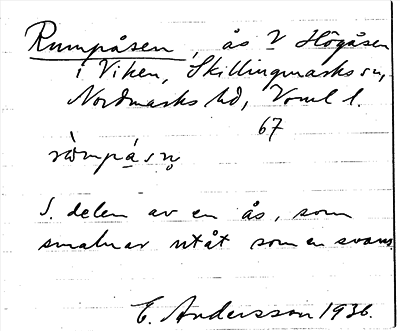 Rumpåsen, ås V Högåsen
i Viken, Skillingmarks sn,
Nordmarks hd, Vrml l.
67
S. delen av en ås, som
smalnar utåt som en svans.
E. Andersson 1936.